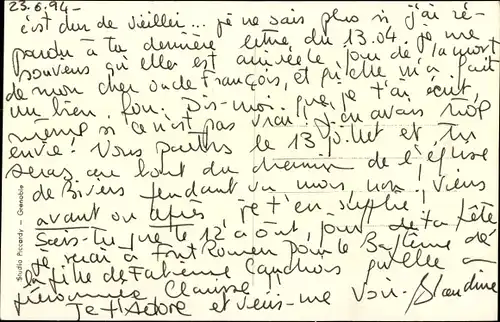 23.6.94 -
c'est dur de vieillir... je ne sais plus si j'ai ré-
pondu à ta dernière lettre du 13.04, je me
souviens qu'elle est arrivée le jour de la mort
de mon cher oncle François, et qu'elle m'a fait
un bien fou. Dis-moi que je t'ai écrit,
même si ce n'est pas vrai! J'en avais trop
envie! Vous partez le 13 juillet et tu
seras au bout du chemin de l'église
de Bivers pendant un mois, non, viens
avant ou après, je t'en supplie!
Sais-tu que le 12 août, jour de ta fête
je serai à Font Romeu pour le Baptême de
la fille de Fabienne qu'elle a
prénommée Clarisse
Je t'Adore et viens-me voir. Blandine
Studio Piccardy - Grenoble